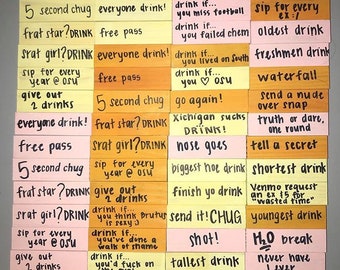 5 second chug
everyone drink!
drink if...
you miss football
sip for every
ex :/
frat star? DRINK
free pass
drink if...
you failed chem
oldest drink
srat girl? DRINK
everyone drink!
drink if...
you lived on south
freshmen drink
sip for every
year @ OSU
free pass
drink if...
you ♡ OSU
waterfall
give out
2 drinks
5 second chug
go again!
send a nude
over snap
everyone drink!
frat star? DRINK
Xichigan sucks
DRINK!
truth or dare,
one round
free pass
srat girl? DRINK
nose goes
tell a secret
5 second chug
sip for every
year @ OSU
biggest hoe drink
shortest drink
frat star? DRINK
give out
2 drinks
finish yo drink
Venmo request
an ex $5 for
"wasted time"
srat girl? DRINK
drink if...
you think Brutus
is sexy :)
send it! CHUG
youngest drink
sip for every
year @ OSU
drink if...
you've done a
walk of shame
shot!
H2O break
give out
2 drinks
drink if...
you'd fuck on
tallest drink
never have